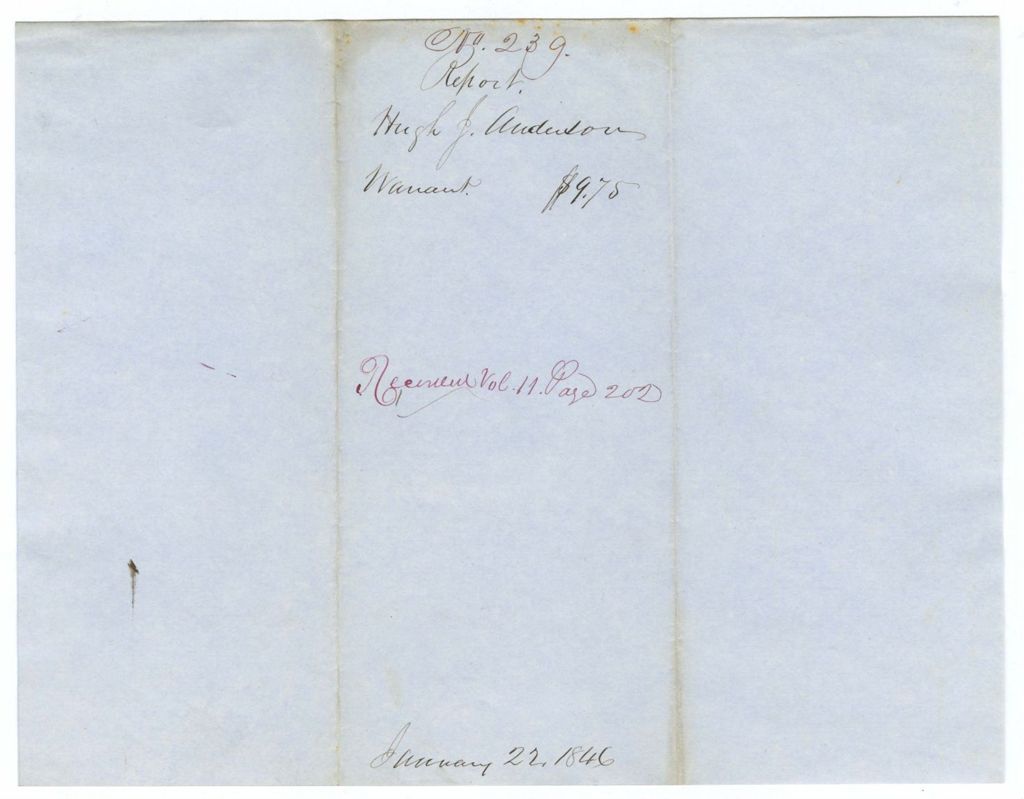 No. 239.
Report.
Hugh J. Anderson
Warrant. $9.75
Recorded Vol. 11. Page 202
January 22, 1846